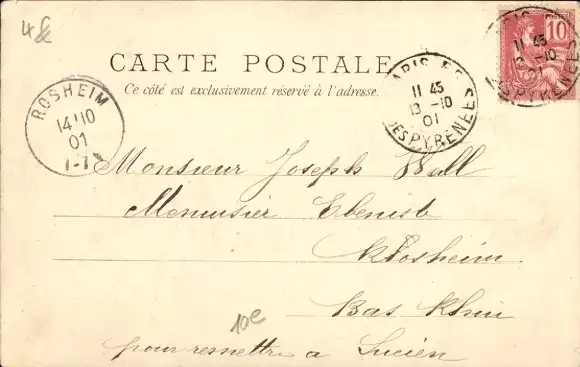 4 &
CARTE POSTALE
Ce côté est exclusivement réservé à l'adresse.
ROSHEIM
14 10
01
PARIS
11 45
13 -10
01
DES PYRÉNÉES
10
11 45
13 -10
01
DES PYRÉNÉES
Monsieur Joseph Wall
Menuisier Ebenist
à Rosheim
Bas Rhin
10e
pour remettre a Lucien